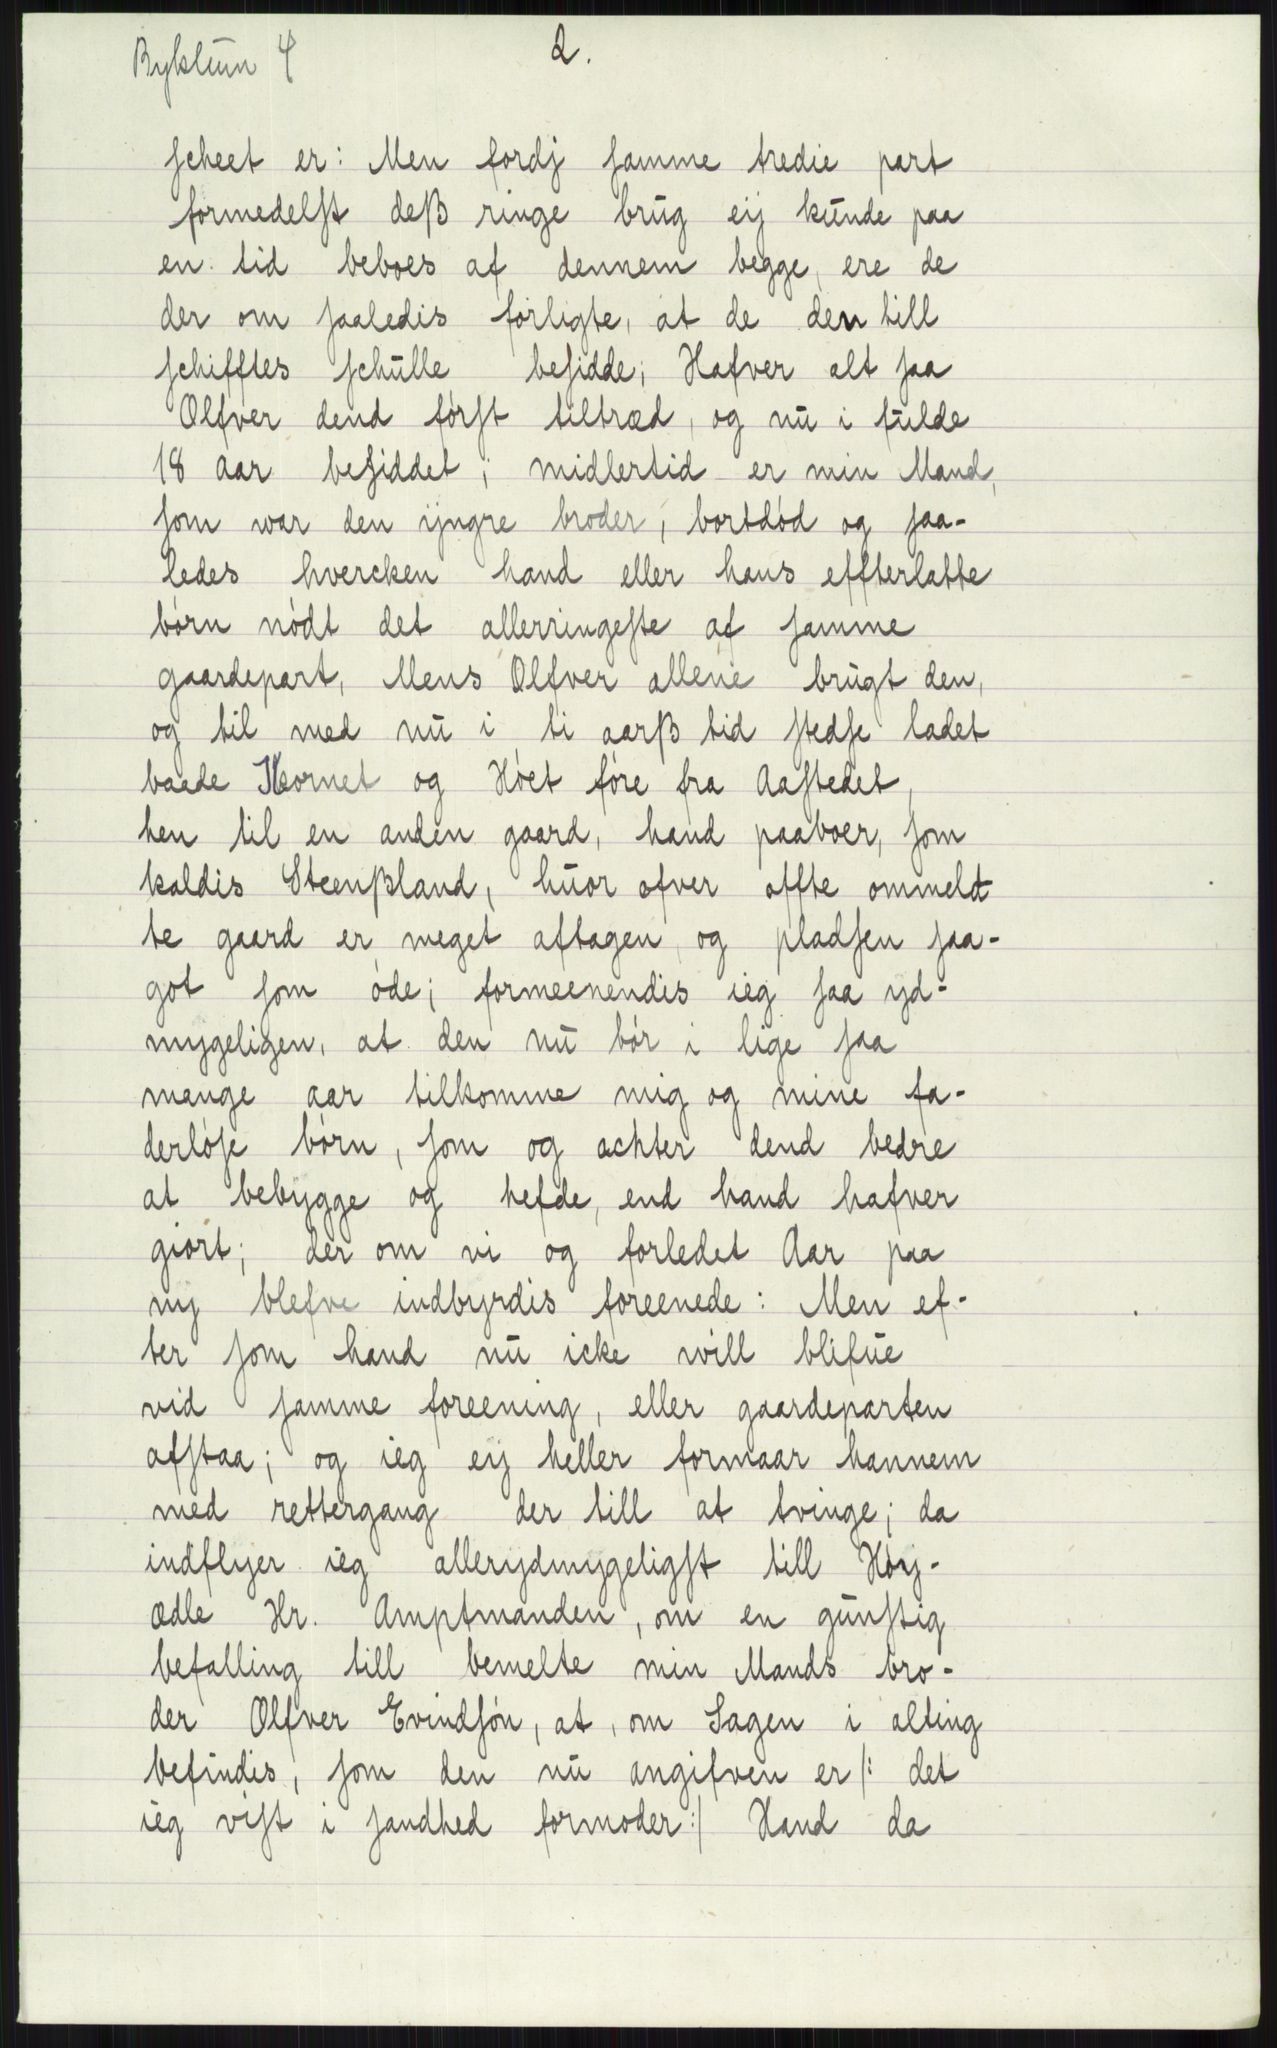 Byklum 4
2.
scheet er: Men fordj samme tredie part
formedelst deß ringe brug eij kunde paa
en tid beboes af dennem begge, ere de
der om saaledis forligte, at de den till
schifftes schulle besidde; Hafver alt saa
Olfver dend først tiltræd, og nu i fulde
18 aar besiddet; midlertid er min Mand,
som war den yngre broder, bortdød og saa-
ledes hvercken hand eller hans effterlatte
børn nødt det allerringeste af samme
gaardepart, Mens Olfver allene brugt den,
og til med nu i ti aarß tid stedse ladet
baade Kornet og Høet føre fra Aastedet,
hen til en anden gaard, hand paaboer, som
kaldis Steenßland, huor ofver offte ommeldt
te gaard er meget aftagen og pladsen saa-
got som øde; formeenendis ieg saa yd-
mygeligen, at den nu bør i lige saa
mange aar tilkomme mig og mine fa-
derløse børn, som og achter dend bedre
at bebygge og hefde, end hand hafver
giort; der om vi og forledet Aar paa
nij blefve indbyrdis foreenede: Men ef-
ter som hand nu icke will blifue
vid samme foreening, eller gaardeparten
afstaa; og ieg eij heller formaar hannem
med rettergang der till at tvinge; da
indflyer ieg allerydmygeligst till Høy-
ædle Hr. Amptmanden, om en gunstig
befalling till bemelte min Mands bro-
der Olfver Evindsøn, at, om Sagen i alting
befindis, som den nu angifven er /: det
ieg vist i sandhed formoder:/ Hand da